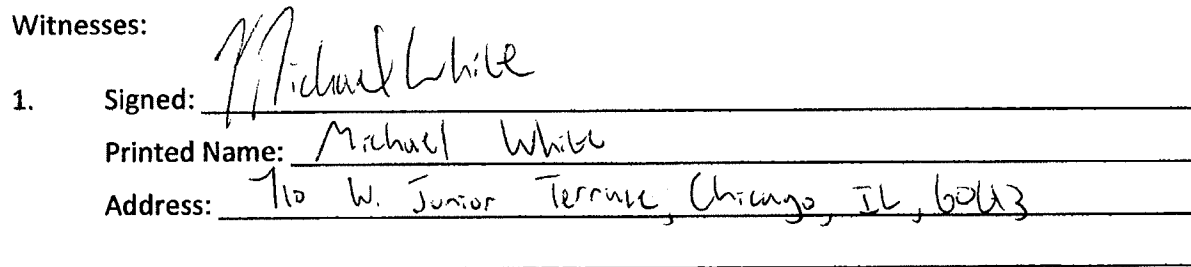 Witnesses:
1. Signed: Michael White
Printed Name: Michael White
Address: 710 W. Junior Terrace, Chicago, IL, 60613